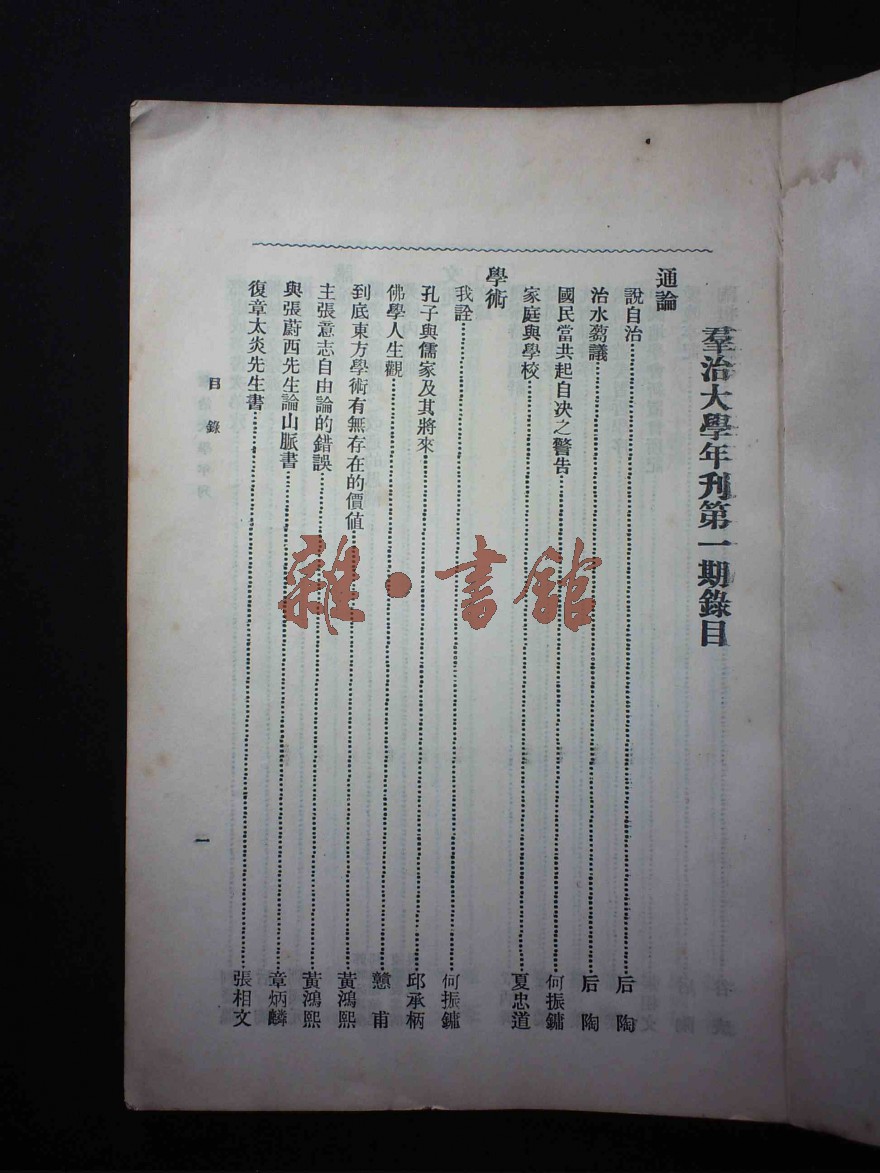 羣治大學年刊第一期錄目
通論
說自治⋯⋯后 陶
治水蒭議⋯⋯后 陶
國民當共起自决之警告⋯⋯何振鏞
家庭與學校⋯⋯夏忠道
學術
我詮⋯⋯何振鏞
孔子與儒家及其將來⋯⋯邱承柄
佛學人生觀⋯⋯戇 甫
到底東方學術有無存在的價值⋯⋯黃鴻熙
主張意志自由論的錯誤⋯⋯黃鴻熙
與張蔚西先生論山脈書⋯⋯章炳麟
復章太炎先生書⋯⋯張相文
目 錄
一
雜·書館